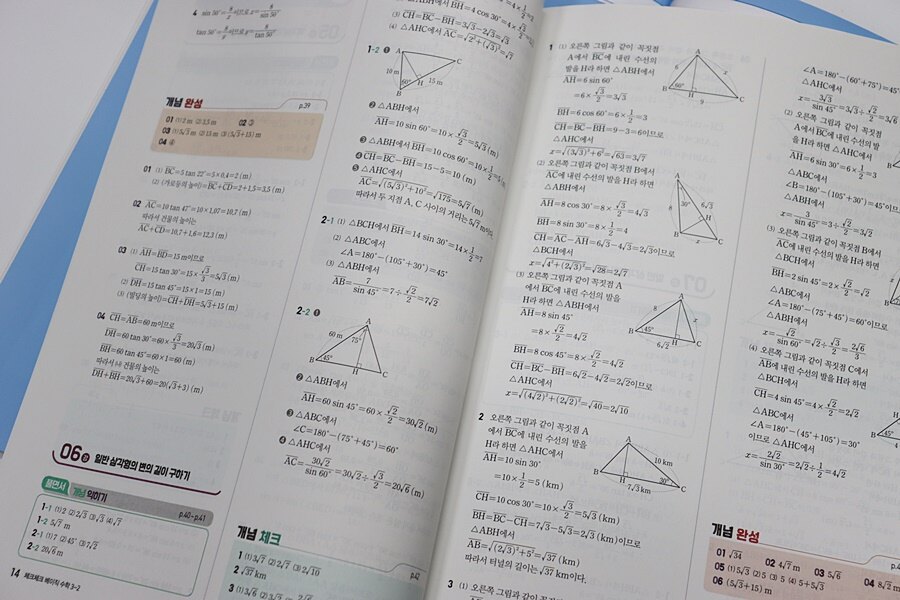 4 sin 50°=8/x이므로 x=8/sin 50°
tan 50°=8/x이므로 x=8/tan 50°
개념 완성
p.39
01 ⑴ 2 m ⑵ 3.5 m 02 ③
03 ⑴ 5√3 m ⑵ 15 m ⑶ (5√3+15) m
04 ④
01 ⑴ BC=5 tan 22°=5×0.4=2 (m)
⑵ (가로등의 높이)=BC+CD=2+1.5=3.5 (m)
02 AC=10 tan 47°=10×1.07=10.7 (m)
따라서 건물의 높이는
AC+CD=10.7+1.6=12.3 (m)
03 ⑴ AH=BD=15 m이므로
CH=15 tan 30°=15×√3/3=5√3 (m)
⑵ DH=15 tan 45°=15×1=15 (m)
⑶ (빌딩의 높이)=CH+DH=5√3+15 (m)
04 CH=AB=60 m이므로
DH=60 tan 30°=60×√3/3=20√3 (m)
BH=60 tan 45°=60×1=60 (m)
따라서 건물의 높이는
DH+BH=20√3+60=20(√3+3) (m)
06강 일반 삼각형의 변의 길이 구하기
풀면서 개념 익히기
p.40~p.41
1-1 ⑴ 2 ⑵ 2√3 ⑶ √3 ⑷ √7
1-2 5√7 m
2-1 ⑴ 7 ⑵ 45° ⑶ 7√2
2-2 20√6 m
14 체크체크 베이직 수학 3-2
⑶ CH=BC-BH=3√3-2√3=√3
⑷ △AHC에서 AC=√(2²+(√3)²)=√7
1-2 ❶
A
10 m
60°
B
H
15 m
C
❷ △ABH에서
AH=10 sin 60°=10×√3/2=5√3 (m)
❸ △ABH에서 BH=10 cos 60°=10×1/2=5 (m)
❹ CH=BC-BH=15-5=10 (m)
❺ △AHC에서
AC=√((5√3)²+10²)=√175=5√7 (m)
따라서 두 지점 A, C 사이의 거리는 5√7 m이다.
2-1 ⑴ △BCH에서 BH=14 sin 30°=14×1/2=7
⑵ △ABC에서
∠A=180°-(105°+30°)=45°
⑶ △ABH에서
AB=7/sin 45°=7÷√2/2=7√2
2-2 ❶
A
60 m
75°
45°
B
H
C
❷ △ABH에서
AH=60 sin 45°=60×√2/2=30√2 (m)
❸ △ABC에서
∠C=180°-(75°+45°)=60°
❹ △AHC에서
AC=30√2/sin 60°=30√2÷√3/2=20√6 (m)
개념 체크
p.42
1 ⑴ 3√7 ⑵ 2√7 ⑶ 2√10
2 √37 km
1 ⑴ 오른쪽 그림과 같이 꼭짓점
A에서 BC에 내린 수선의
발을 H라 하면 △ABH에서
AH=6 sin 60°
=6×√3/2=3√3
A
6
x
60°
B
H
9
C
BH=6 cos 60°=6×1/2=3
CH=BC-BH=9-3=6이므로
△AHC에서
x=√((3√3)²+6²)=√63=3√7
⑵ 오른쪽 그림과 같이 꼭짓점 B에서
AC에 내린 수선의 발을 H라 하면
△ABH에서
AH=8 cos 30°=8×√3/2=4√3
BH=8 sin 30°=8×1/2=4
CH=AC-AH=6√3-4√3=2√3이므로
△BCH에서
x=√(4²+(2√3)²)=√28=2√7
A
8
30°
6√3
H
B
x
C
⑶ 오른쪽 그림과 같이 꼭짓점 A
에서 BC에 내린 수선의 발을
H라 하면 △ABH에서
AH=8 sin 45°
=8×√2/2=4√2
A
8
x
45°
B
H
6√2
C
BH=8 cos 45°=8×√2/2=4√2
CH=BC-BH=6√2-4√2=2√2이므로
△AHC에서
x=√((4√2)²+(2√2)²)=√40=2√10
2 오른쪽 그림과 같이 꼭짓점 A
에서 BC에 내린 수선의 발을
H라 하면 △AHC에서
AH=10 sin 30°
=10×1/2=5 (km)
A
10 km
30°
B
H
7√3 km
C
CH=10 cos 30°=10×√3/2=5√3 (km)
BH=BC-CH=7√3-5√3=2√3 (km)이므로
△ABH에서
AB=√((2√3)²+5²)=√37 (km)
따라서 터널의 길이는 √37 km이다.
3 ⑴ 오른쪽 그림과
∠A=180°-(60°+75°)=45°
△AHC에서
x=3√3/sin 45°=3√3÷√2/2=3√6
⑵ 오른쪽 그림과 같이 꼭짓점
A에서 BC에 내린 수선의 발
을 H라 하면 △AHC에서
AH=6 sin 30°=6×1/2=3
△ABC에서
∠B=180°-(105°+30°)=45°이므로
△ABH에서
x=3/sin 45°=3÷√2/2=3√2
⑶ 오른쪽 그림과 같이 꼭짓점 B에서
AC에 내린 수선의 발을 H라 하면
△BCH에서
BH=2 sin 45°=2×√2/2=√2
△ABC에서
∠A=180°-(75°+45°)=60°이므로
△ABH에서
x=√2/sin 60°=√2÷√3/2=2√6/3
⑷ 오른쪽 그림과 같이 꼭짓점 C에서
AB에 내린 수선의 발을 H라 하면
△BCH에서
CH=4 sin 45°=4×√2/2=2√2
△ABC에서
∠A=180°-(45°+105°)=30°
이므로 △AHC에서
x=2√2/sin 30°=2√2÷1/2=4√2
개념 완성
01 √34 02 4√7 m 03 5√6 04 8√2 m
05 ⑴ 5√3 ⑵ 5 ⑶ 5 ⑷ 5+5√3
06 (5√3+15) m